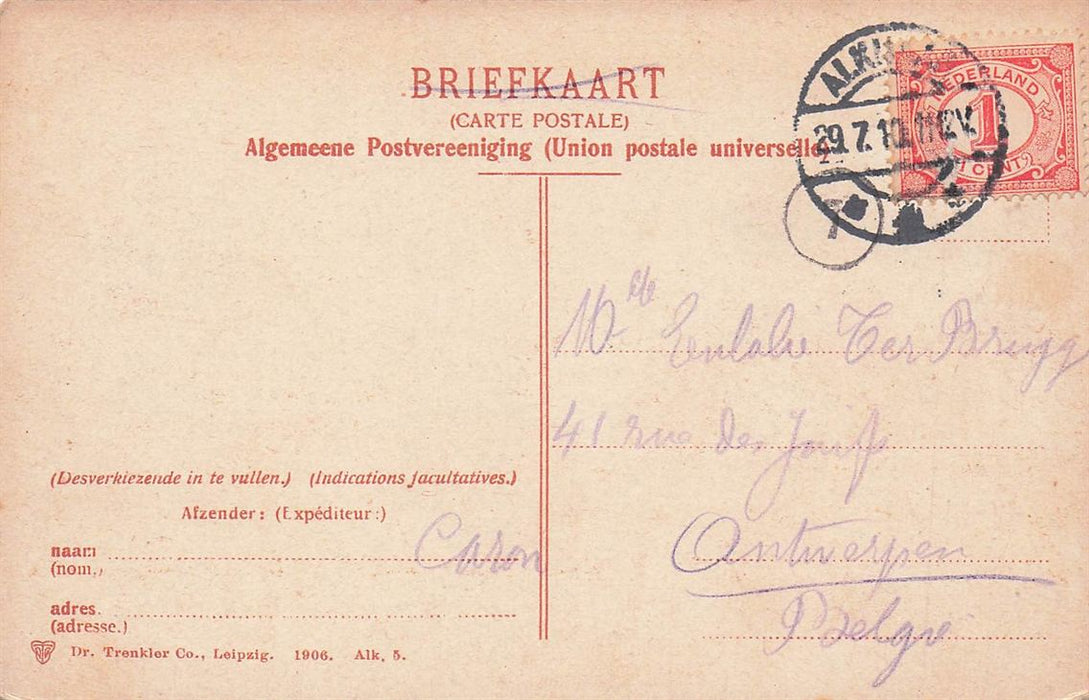 BRIEFKAART
(CARTE POSTALE)
Algemeene Postvereeniging (Union postale universelle)
NEDERLAND
1
1 CENT
29.7.10
T
Eulalie Ter Brugg
41 rue des
Antwerpen
Belgie
(Desverkiezende in te vullen.) (Indications facultatives.)
Afzender: (Expéditeur:)
naam Caron
(nom.)
adres.
(adresse.)
Dr. Trenkler Co., Leipzig. 1906. Alk, 5.